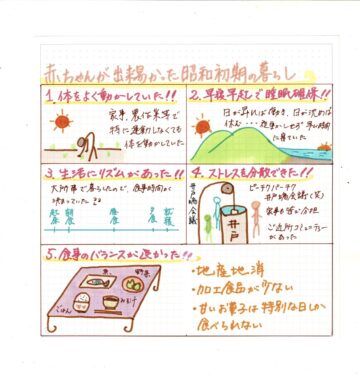 赤ちゃんが出来易かった昭和初期の暮らし
1.体をよく動かしていた!!
家事、農作業等で
特に運動しなくても
体を動かしていた
2.早寝早起で睡眠確保!!
日が昇れば働き、日が沈めば
休む…
に寝ていた
3.生活にリズムがあった!!
大所帯で暮らしたので、食事時間が
決まっていた
起床
朝食
昼食
夕食
就寝
4.ストレスを分散できた!!
井戸端会議
井戸
ピーチクパーチク
井戸端会議(笑)
家事も皆で分担
ご近所コミュニティーが
あった
5.食事のバランスが良かった!!
魚
野菜
ごはん
みそ汁
・地産地消
・加工食品が少ない
・甘いお菓子は特別な日しか
食べられない